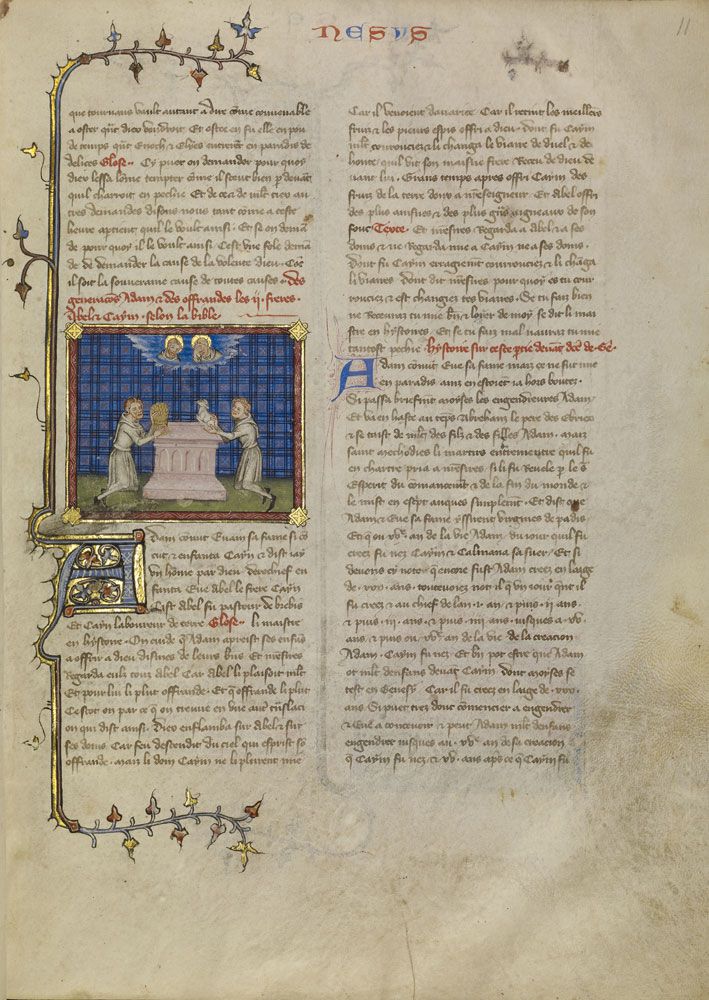 NESUS
11
que tournans vault autant a dire come convenable
a oster quant dieu vouldroit Et ostee en fu elle en pou
de temps quant Enoch & Elyes entrerent en paradis de
delices Glose Cy puet on demander pour quoy
dieu lessa lome tempter come il sceut bien devant
quil charroit en pechie Et de ce & de mlt dieu au
tres demandes disons nous tant come a ceste
heure apptient quil le voult ainsi Et se on deman
de pour quoy il le voult ainsi Cest une fole deman
de de demander la cause de la volente dieu Come
il soit la souveraine cause de toutes causes des
generacions Adam & des offrandes les ii freres
Abel & Caym selon la bible
Adam conut Evam sa fame si co
cut & enfanta Cayn & dist iay
un home par dieu derechief en
fanta Eve Abel le frere Cayn
Cist Abel fu pasteur de brebis
Et Cayn laboureur de terre Glose li maistre
en hystoire On cuide que Adam apreist ses enfans
a offrir a dieu disines de leurs biens Et nostre sires
Regarda eulz touz Abel Car Abel li plaisoit mlt
Et pour lui li plut offrande Et que offrande li plut
Ce scot on par ce que on treuve en une autre translaci
on qui dist ainsi Dieu enflamba sur Abel & sur
ses dons Car feu descendit du ciel qui esprist so
offrande Mais li dom Caym ne li plurent mie
Car il venoient davarice Car il retint les meilleurs
fruiz & les pieurs espis offri a dieu dont fu Caym
mlt courrouciez & li changa le viaire de duel & de
honte quil vit son maisne frere Receu de dieu de
vant lui Grans temps apres offri Caym des
fruiz de la terre dons a nostre seigneur Et Abel offri
des plus ainsnes & des plus gras aigneaux de son
fouc Texte Et nostre sires Regarda a Abel & a ses
doms & ne Regarda mie a Caym ne a ses doms
dont fu Caym erragiement courrouciez & li changa
li viaires dont dit nostre sires pour quoy es tu cour
rouciez & est changiez tes viaires Se tu faiz bien
ne Recevraz tu mie bien loyer de moy se dit li mai
stre en hystoires Et se tu faiz mal nauraz tu mie
tantost pechie hystoire sur ceste ptie devant dite de Ge
Adam conut Eve sa fame maiz ce ne fut mie
en paradis ainz en estoiet ia hors boutez
Si passa briefment moyses les engendreures Adam
Et va en haste au teps Abraham le pere des Ebrieu
& se taist de mlt des filz & des filles Adam Maiz
saint methodies li martirs entremente quil fu
en chartre pria a nostre sires si li fu Revele par le saint
Esperit du comancement & de la fin du monde &
le mist en escript auques simplement Et dist que
Adam & Eve sa fame yssirent virgines de padis
Et que ou an de la vie Adam du iour quil fu
creez fu nez Caym & Calmana sa suer Et si
devons cy noter que encore fust Adam creez en laage
de ans toutevoiez not il que un iour quant il
fu creez & au chief de lan i an & puis ii ans
& puis iii ans & puis iiii ans iusques a
ans & puis ou an de la vie de la creacion
Adam Caym fu nez Et bien pot estre que Adam
ot mlt denfans devant Caym dont moyses se
test en Genesy Car il fu creez en laage de
ans Si puet tres donc comencier a engendrer
& Eve a concevoir & peut Adam mlt denfans
engendrer iusques au an de sa creacion
que Caym fu nez & ans apres ce que Caym fu